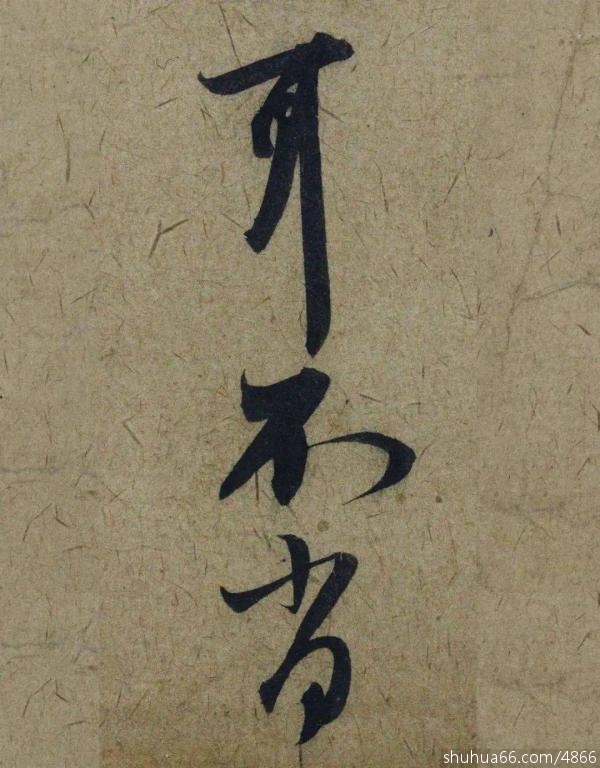 耳不省
shuhua66.com/4866